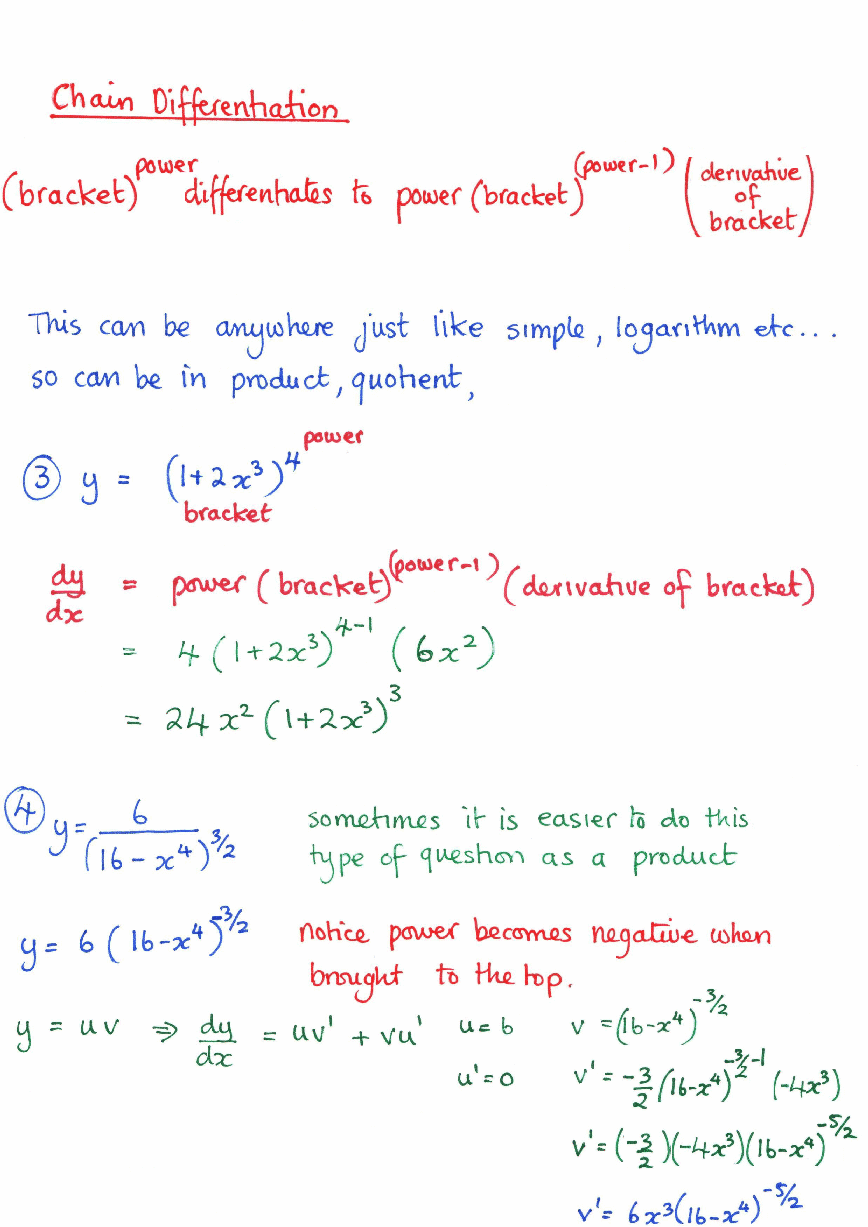 Chain Differentiation
(bracket)^power differentiates to power (bracket)^(power-1) (derivative of bracket)
This can be anywhere just like simple, logarithm etc...
so can be in product, quotient,
③ y = (1+2x³)⁴ power
bracket
dy/dx = power (bracket)^(power-1) (derivative of bracket)
= 4 (1+2x³)^(4-1) (6x²)
= 24x² (1+2x³)³
④ y = 6/(16-x⁴)^(3/2) sometimes it is easier to do this
type of question as a product
y = 6 (16-x⁴)^(-3/2) notice power becomes negative when
brought to the top.
y = uv ⇒ dy/dx = uv' + vu' u = 6 v = (16-x⁴)^(-3/2)
u' = 0 v' = -3/2 (16-x⁴)^(-3/2-1) (-4x³)
v' = (-3/2)(-4x³)(16-x⁴)^(-5/2)
v' = 6x³(16-x⁴)^(-5/2)